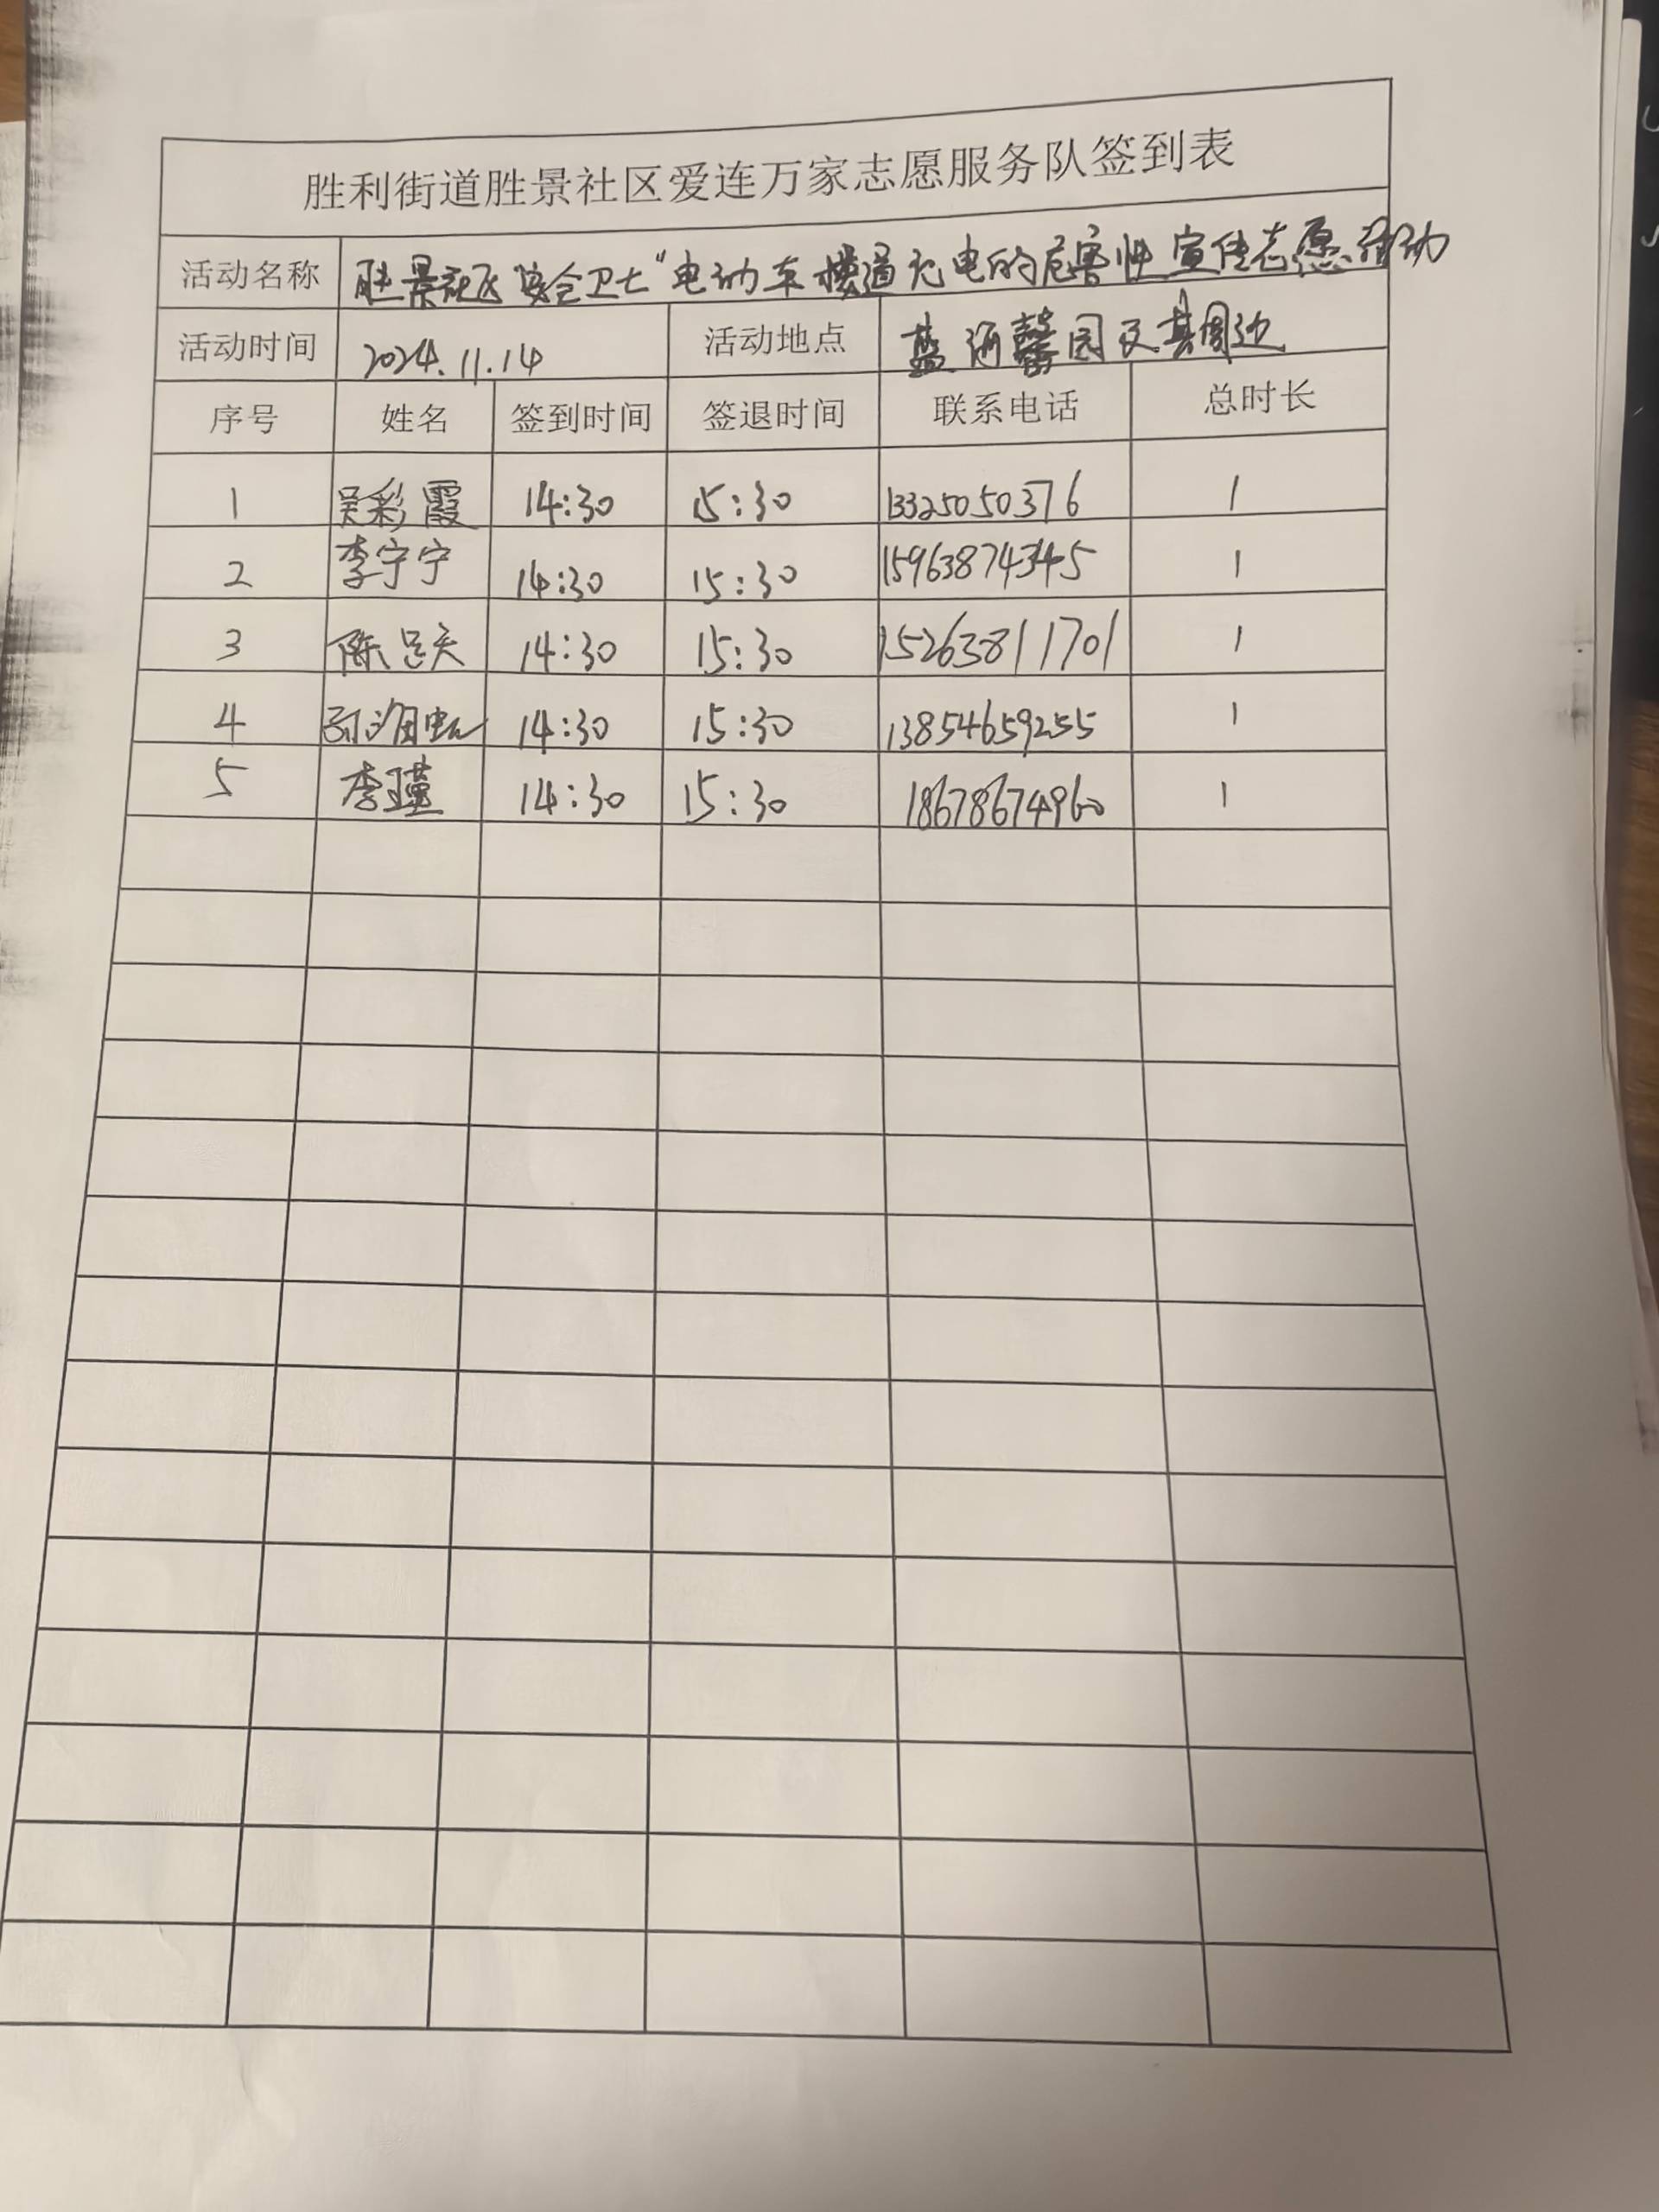 胜利街道胜景社区爱连万家志愿服务队签到表
活动名称 胜景社区"安全卫士"电动车楼道充电的危害性宣传志愿活动
活动时间 2024.11.14 活动地点 蓝海馨园及其周边
序号 姓名 签到时间 签退时间 联系电话 总时长
1 吴彩霞 14:30 15:30 13325050376 1
2 李宁宁 14:30 15:30 15963874345 1
3 陈 14:30 15:30 15263811701 1
4 14:30 15:30 13854659255 1
5 李瑾 14:30 15:30 18678674960 1